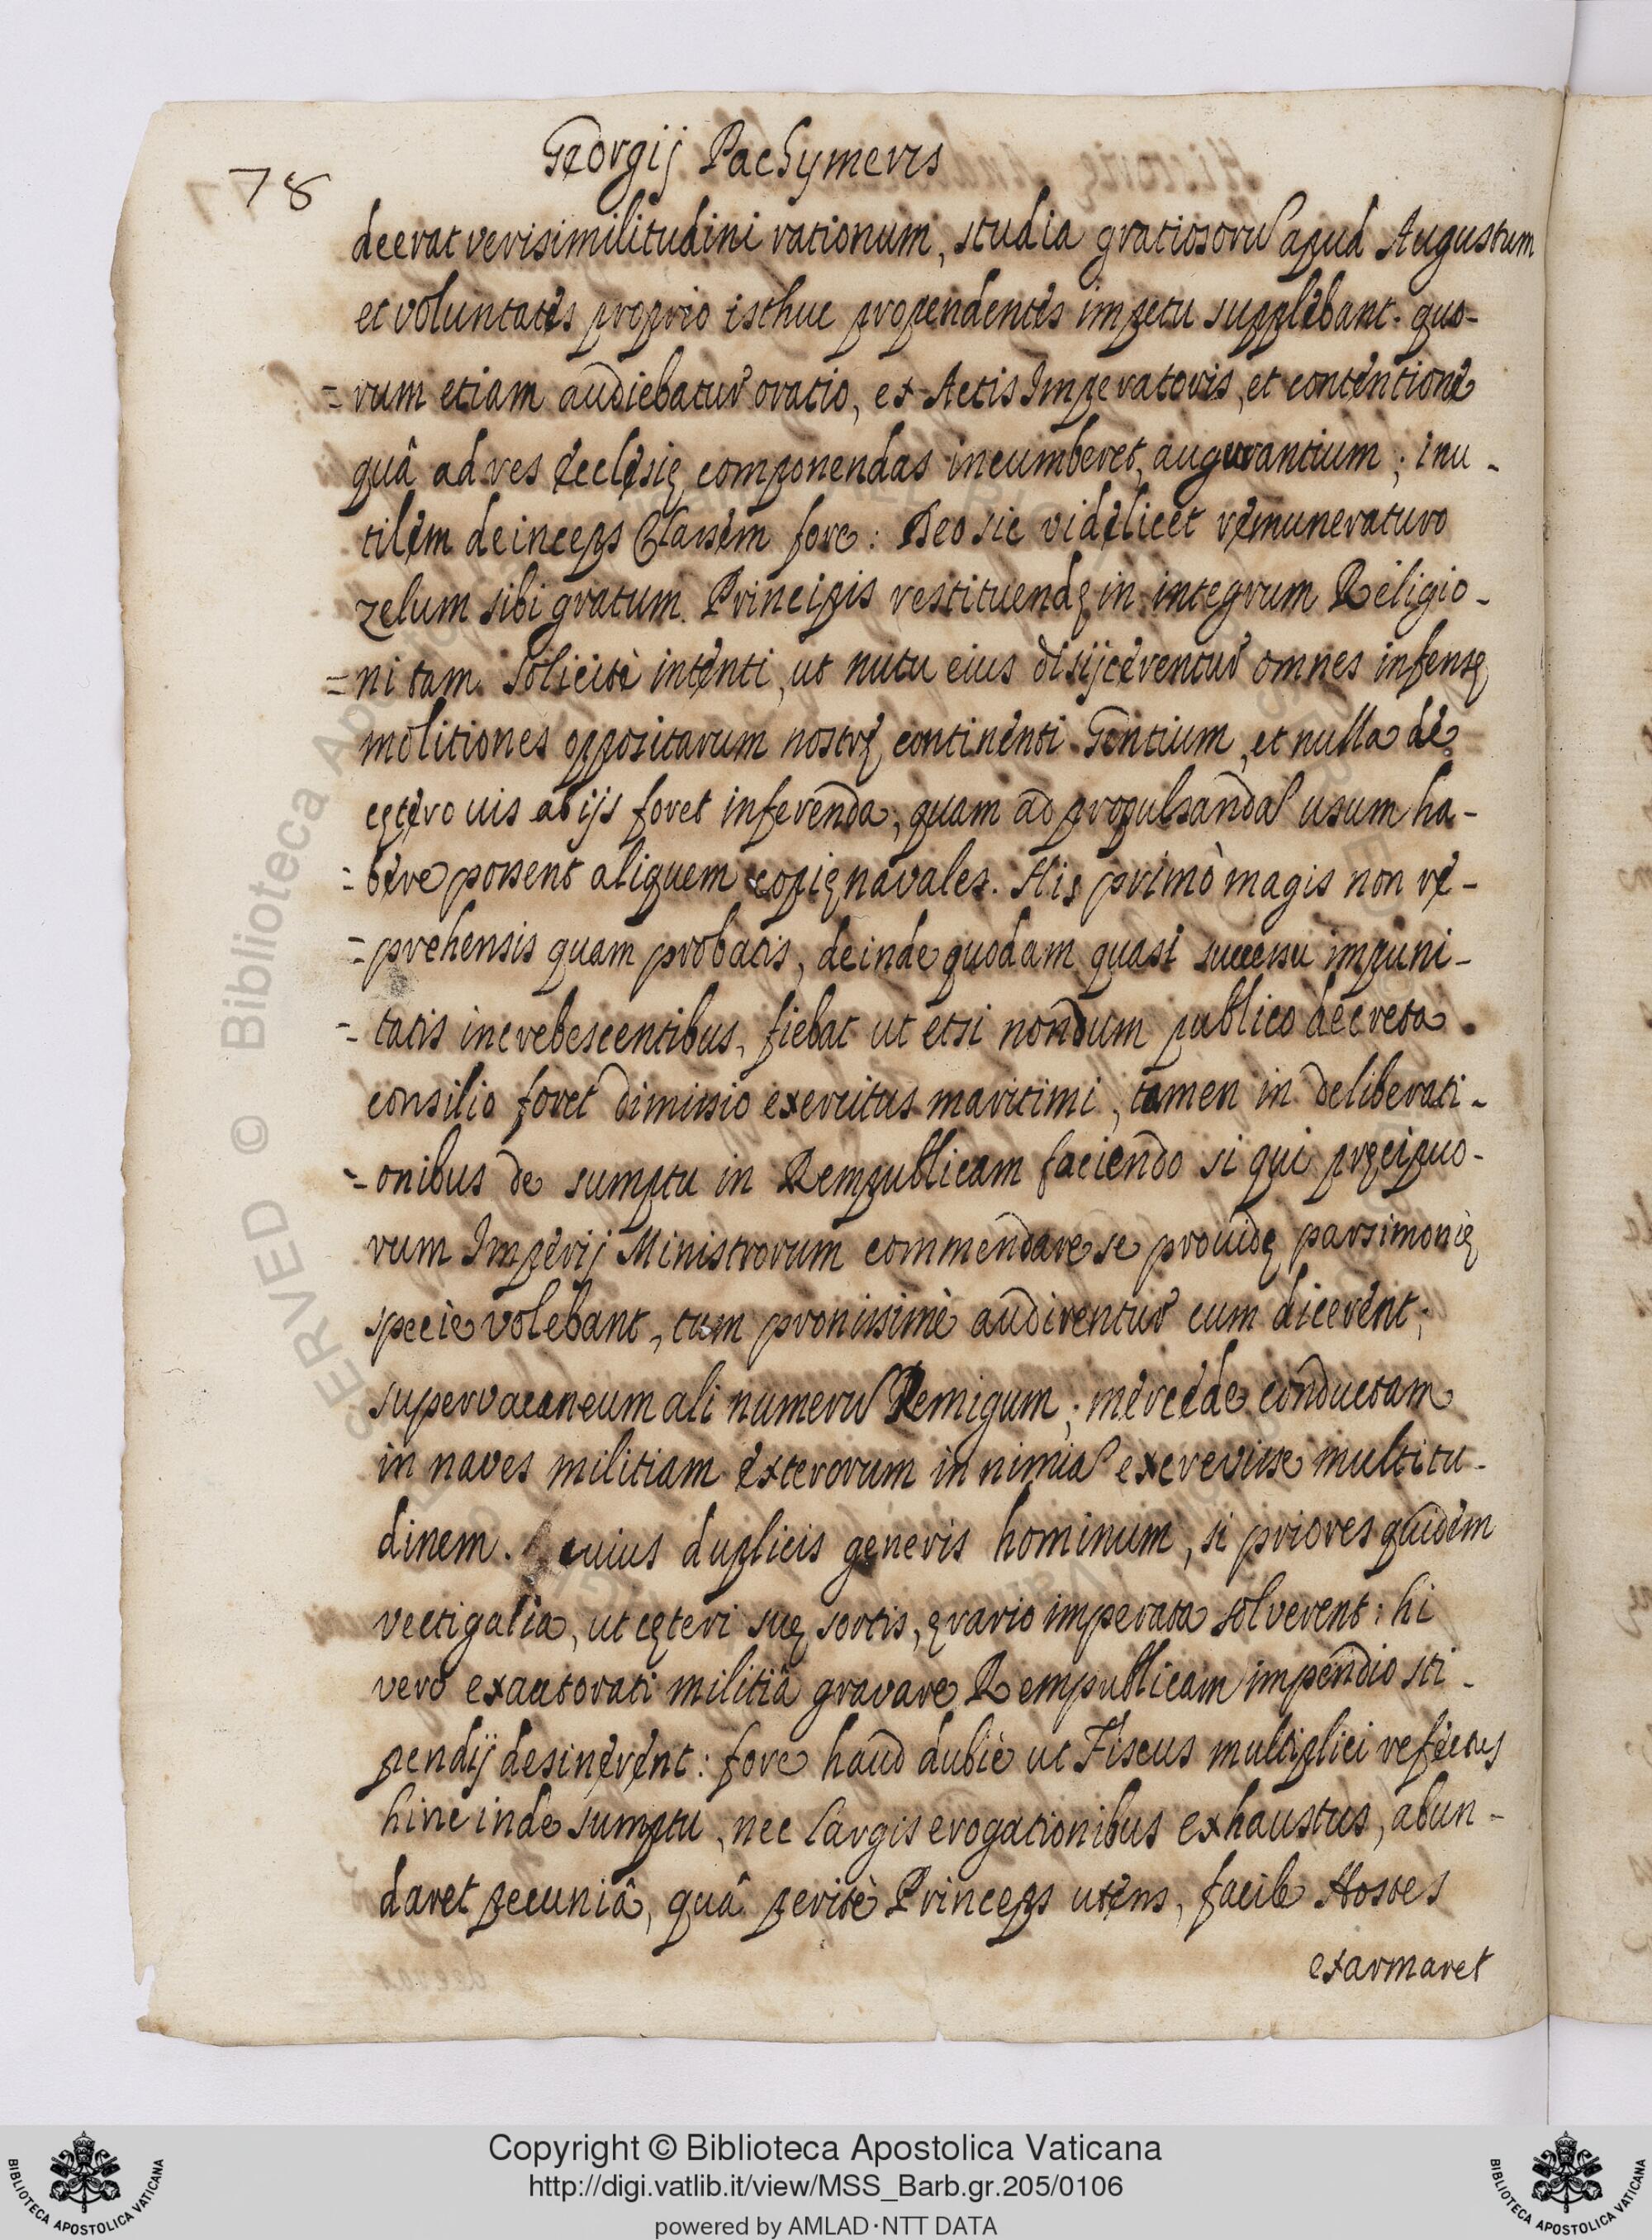 78
Georgij Pachymeris
deerat verisimilitudini rationum, studia gratiosorũ apud Augustum
et voluntates proprio isthuc propendentes impetu supplebant. quo-
=rum etiam audiebatur oratio, ex Actis Imperatoris, et contentione
quâ ad res ecclesię componendas incumberet, augurantium; inu-
tilem deinceps Classem fore: Deo sic videlicet remuneraturo
zelum sibi gratum. Principis restituendę in integrum Religio-
=ni tam solicitè intenti, ut nutu eius disijcerentur omnes infensę
molitiones oppositarum nostrę continenti Gentium, et nulla de
cętero uis ab ijs foret inferenda, quam ad propulsandã usum ha-
=bere possent aliquem copię navales. His primò magis non re-
=prehensis quam probatis, deinde quodam quasi successu impuni-
-tatis increbescentibus, fiebat ut etsi nondum publico decreta
consilio foret dimissio exercitus maritimi, tamen in deliberati-
=onibus de sumptu in Rempublicam faciendo si qui pręcipuo-
rum Imperij Ministrorum commendare se prouidę parsimonię
specie volebant, tum pronissimè audirentur cum dicerent;
supervacaneum ali numerũ Remigum; mercede conductam
in naves militiam exterorum in nimiã excrevisse multitu-
dinem. cuius duplicis generis hominum, si priores quidem
vectigalia, ut cęteri suę sortis, ęrario imperata solverent: hi
vero exauctorati militiâ gravare Rempublicam impendio sti-
pendij desinerent: fore haud dubiè ut Fiscus multiplici refectus
hinc inde sumptu, nec largis erogationibus exhaustus, abun-
daret pecuniâ, quâ peritè Princeps utens, facile Hostes
exarmaret
© Biblioteca Apostolica Vaticana
Copyright © Biblioteca Apostolica Vaticana
http://digi.vatlib.it/view/MSS_Barb.gr.205/0106
powered by AMLAD·NTT DATA
BIBLIOTECA APOSTOLICA VATICANA
BIBLIOTECA APOSTOLICA VATICANA